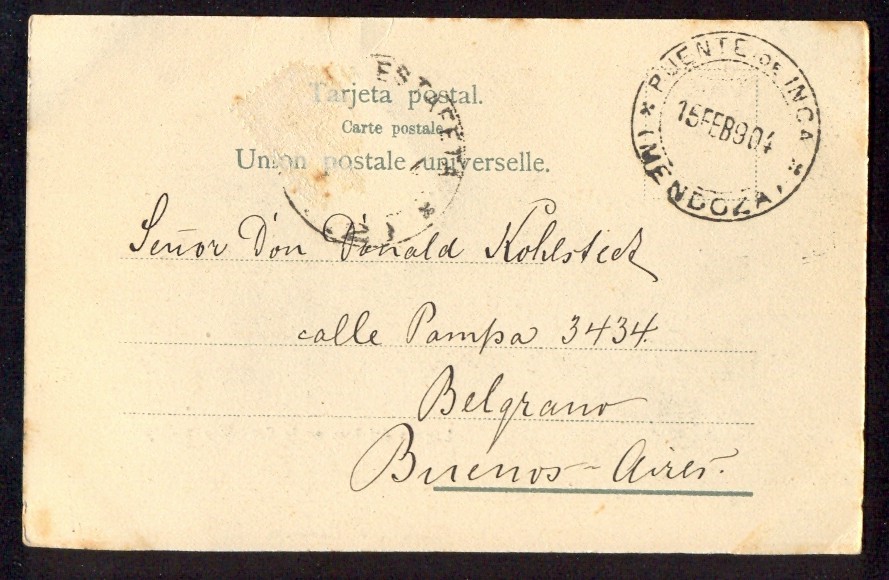 Tarjeta postal.
Carte postale
Union postale universelle.
ESTAFETA
PUENTE DE INCA
15 FEB 904
(MENDOZA)
Señor Don Donald Kohlstedt
calle Pampa 3434.
Belgrano
Buenos-Aires.